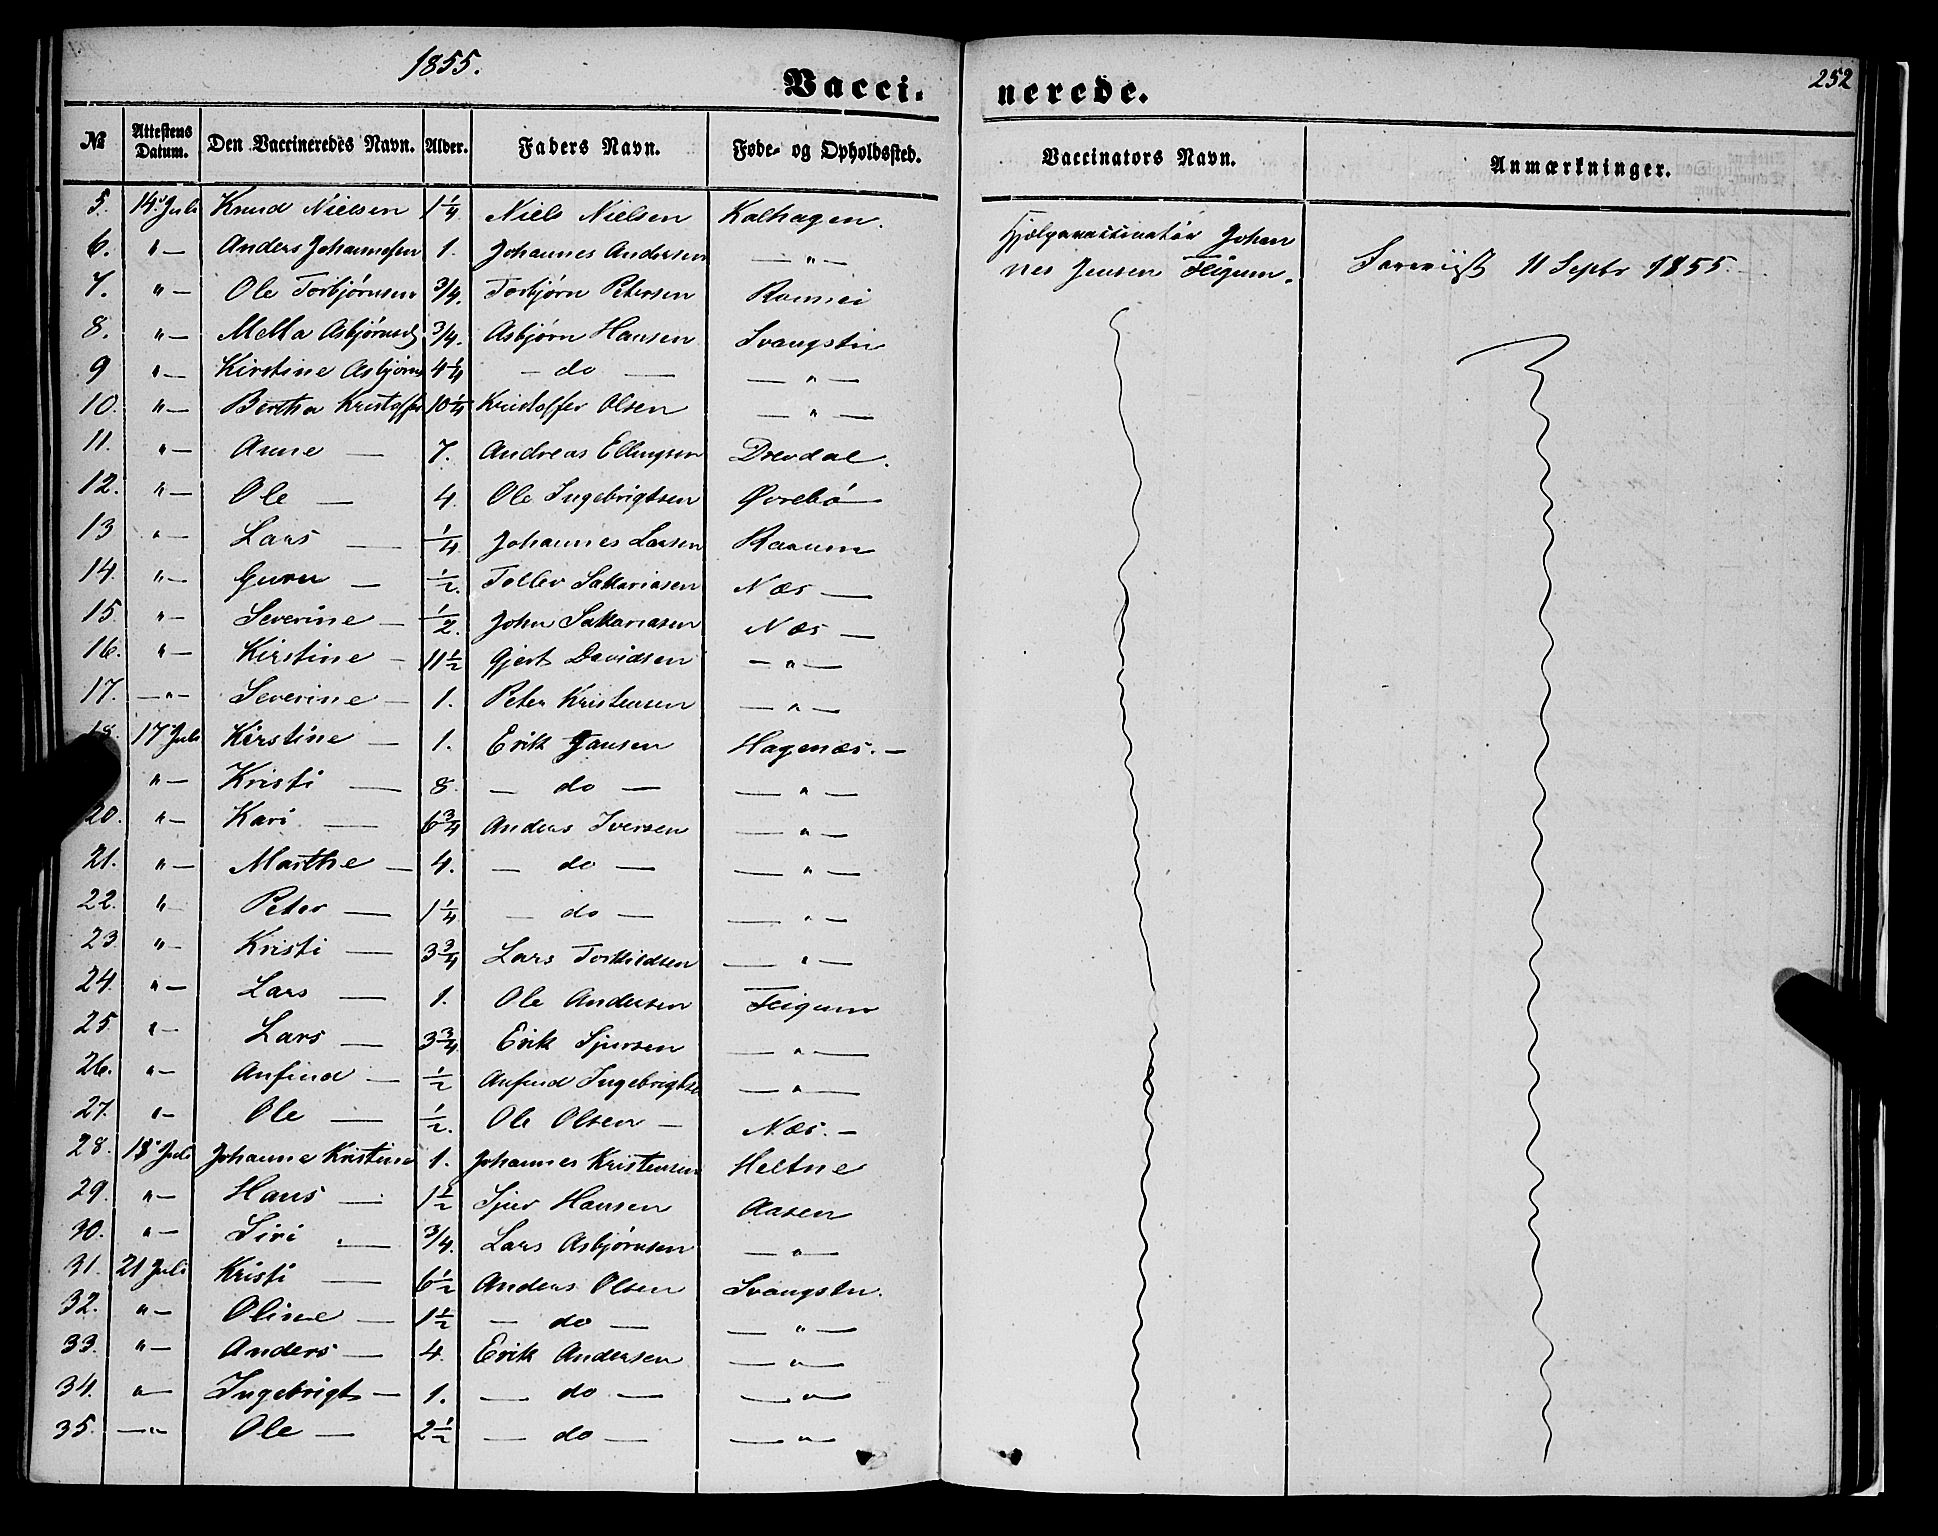 1855.
Vacci-
nerede.
252
№ Attestens Datum. Den Vaccineredes Navn. Alder. Faders Navn. Føde- og Opholdssted. Vaccinators Navn. Anmærkninger.
5. 14. Juli Knud Nielsen 1 1/4 Niels Nielsen Kalhagen.
6. "— Anders Johannesen 1. Johannes Andersen —"—
Johan
nes Jensen Feigum. 11 Septbr 1855.
7. "— Ole Torbjørnsen 3/4. Torbjørn Petersen
8. "— Asbjørnsd 3/4. Asbjørn Hansen
9 "— Kirstine Asbjørns 4 1/4 — do — —"—
10. "— Bertha Kristoffer 10 1/4 Kristoffer Olsen —"—
11. "— Anne — 7. Andreas Ellingsen Drevdal.
12. "— Ole — 4. Ole Ingebrigtsen Øvrebø
13 "— Lars — 1/4 Johannes Larsen
14. "— Guru — 1/2. Tollev Sakariasen Næs —
15. "— Severine — 1/2. John Sakariasen Næs —
16. "— Kirstine — 11 1/2 Gjert Davidsen —"—
17. —"— Severine — 1. Peter Kristensen —"—
18. 17 Juli Kirstine — 1. Erik Jansen Hagenæs. —
"— Kristi — 8. — do — —"—
20. "— Kari — 6 3/4 Anders Iversen —"—
21. "— Marthe — 4. — do — —"—
22. "— Peter — 1 1/4 — do — —"—
23. "— Kristi — 3 3/4 Lars Torkildsen —"—
24. "— Lars — 1. Ole Andersen Feigum
25. "— Lars — 3 3/4 Erik Sjursen —"—
26. "— Anfind — 1/2 Anfind Ingebrigtse —"—
27. "— Ole — 1/2. Ole Olsen — Næs. —
28. 18. Juli Johanne Kristine 1. Johannes Kristensen Heltne
29. "— Hans — 1 1/2 Sjur Hansen Aasen
30. "— Siri — 3/4. Lars Asbjørnsen —"—
31. 21 Juli Kristi — 6 1/2 Anders Olsen
32. "— Oline — 1 1/2 — do — —"—
33. "— Anders — 4. Erik Andersen —"—
34. "— Ingebrigt — 1. — do — —"—
35. —"— Ole — 2 1/2 — do — —"—